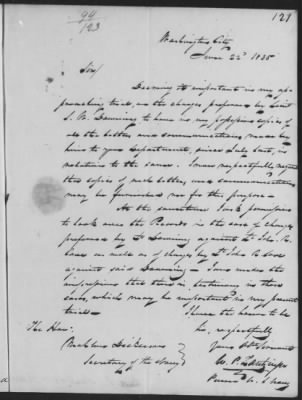 94
123
121
Washington City
June 22d 1835
Sir/
Deeming it important in my ap-
proaching trial, on the charges preferred by Lieut
S. W. Downing to have in my possession copies of
all the letters and communications made by
him to your Department, since last, in
relation to the same. I most respectfully request
that copies of such letters and communications
may be furnished me for this purpose.
At the same time I ask permission
to look over the Records in the case of charges
preferred by Lt Downing against Lt Jno. R.
as well as of charges by Lt Jno R
against said Downing - and make the
that there is, in those
cases, which may be important in my present
trial -
I have the honor to be
The Hon:
Mahlon Dickerson
Secretary of the Navy
Sir, respectfully
Your Obt Servant
P.
Purser U. S. Navy